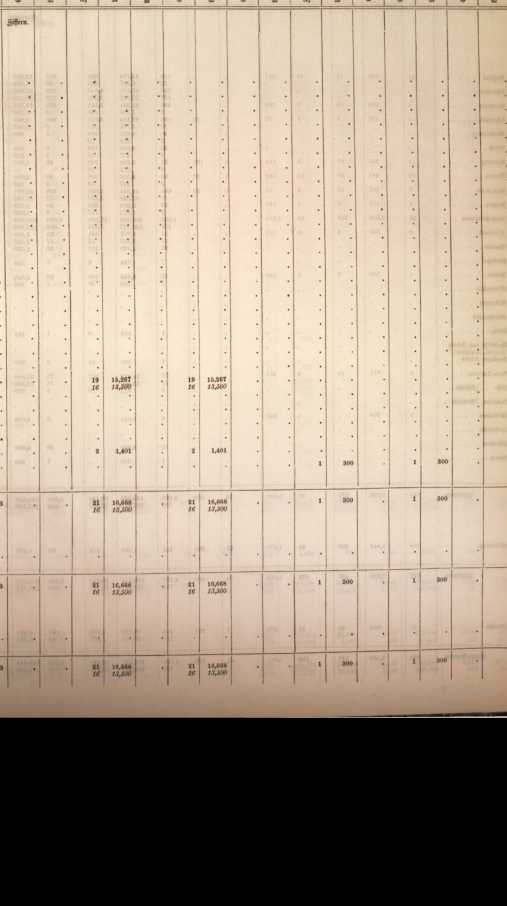 Ziffern.
19 15,267 19 15,267
16 13,500 16 13,500
2 1,401 2 1,401
1 300 1 300
21 16,668 21 16,668 1 300 1 300
16 13,500 16 13,500
21 16,668 21 16,668 1 300 1 300
16 13,500 16 13,500
21 16,668 21 16,668 1 300 1 300
16 13,500 16 13,500